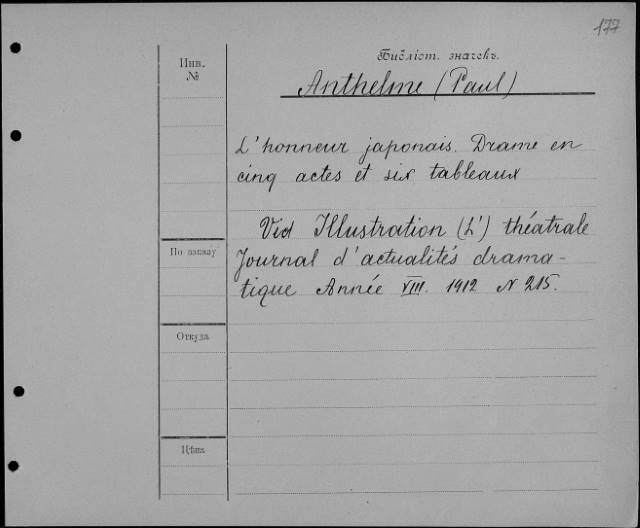 177
Библіот. значекъ.
Инв.
№
Anthelme (Paul)
L'honneur japonais. Drame en
cinq actes et six tableaux
Vid Illustration (L') théatrale
Journal d'actualités drama-
tique Année VIII. 1912 N 215.
По шкапу
Откуда
Цѣна